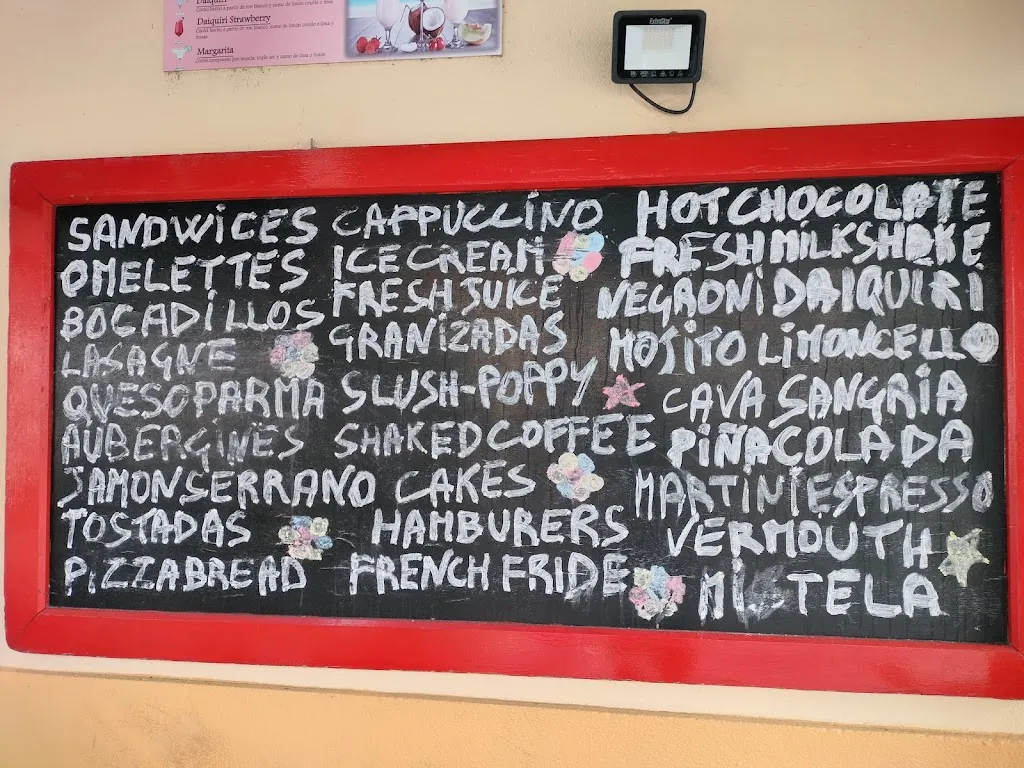 Daiquiri
Daiquiri Strawberry
Margarita
ExtraStar
SANDWICES
OMELETTES
BOCADILLOS
LASAGNE
QUESO PARMA
AUBERGINES
JAMON SERRANO
TOSTADAS
PIZZABREAD
CAPPUCCINO
ICE CREAM
FRESH JUICE
GRANIZADAS
SLUSH-POPPY
SHAKED COFFEE
CAKES
HAMBURERS
FRENCH FRIDE
HOT CHOCOLATE
FRESH MILKSHAKE
NEGRONI DAIQUIRI
MOJITO LIMONCELLO
CAVA SANGRIA
PIÑA COLADA
MARTINI ESPRESSO
VERMOUTH
MISTELA